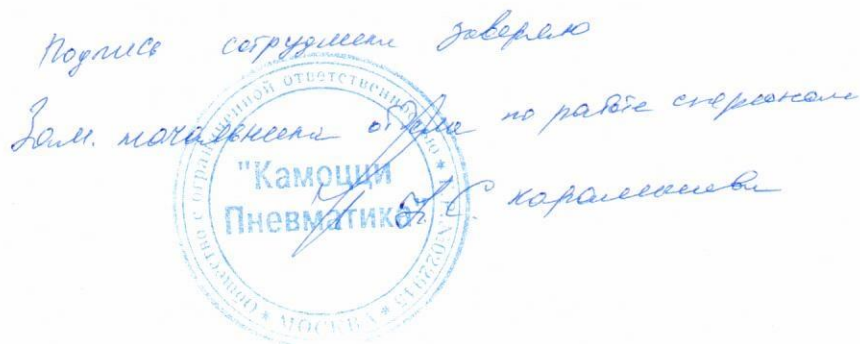 Подпись сотрудника заверяю
Зам. начальника отдела по работе с персоналом
Общество с ограниченной ответственностью
"Камоцци
Пневматика"
МОСКВА